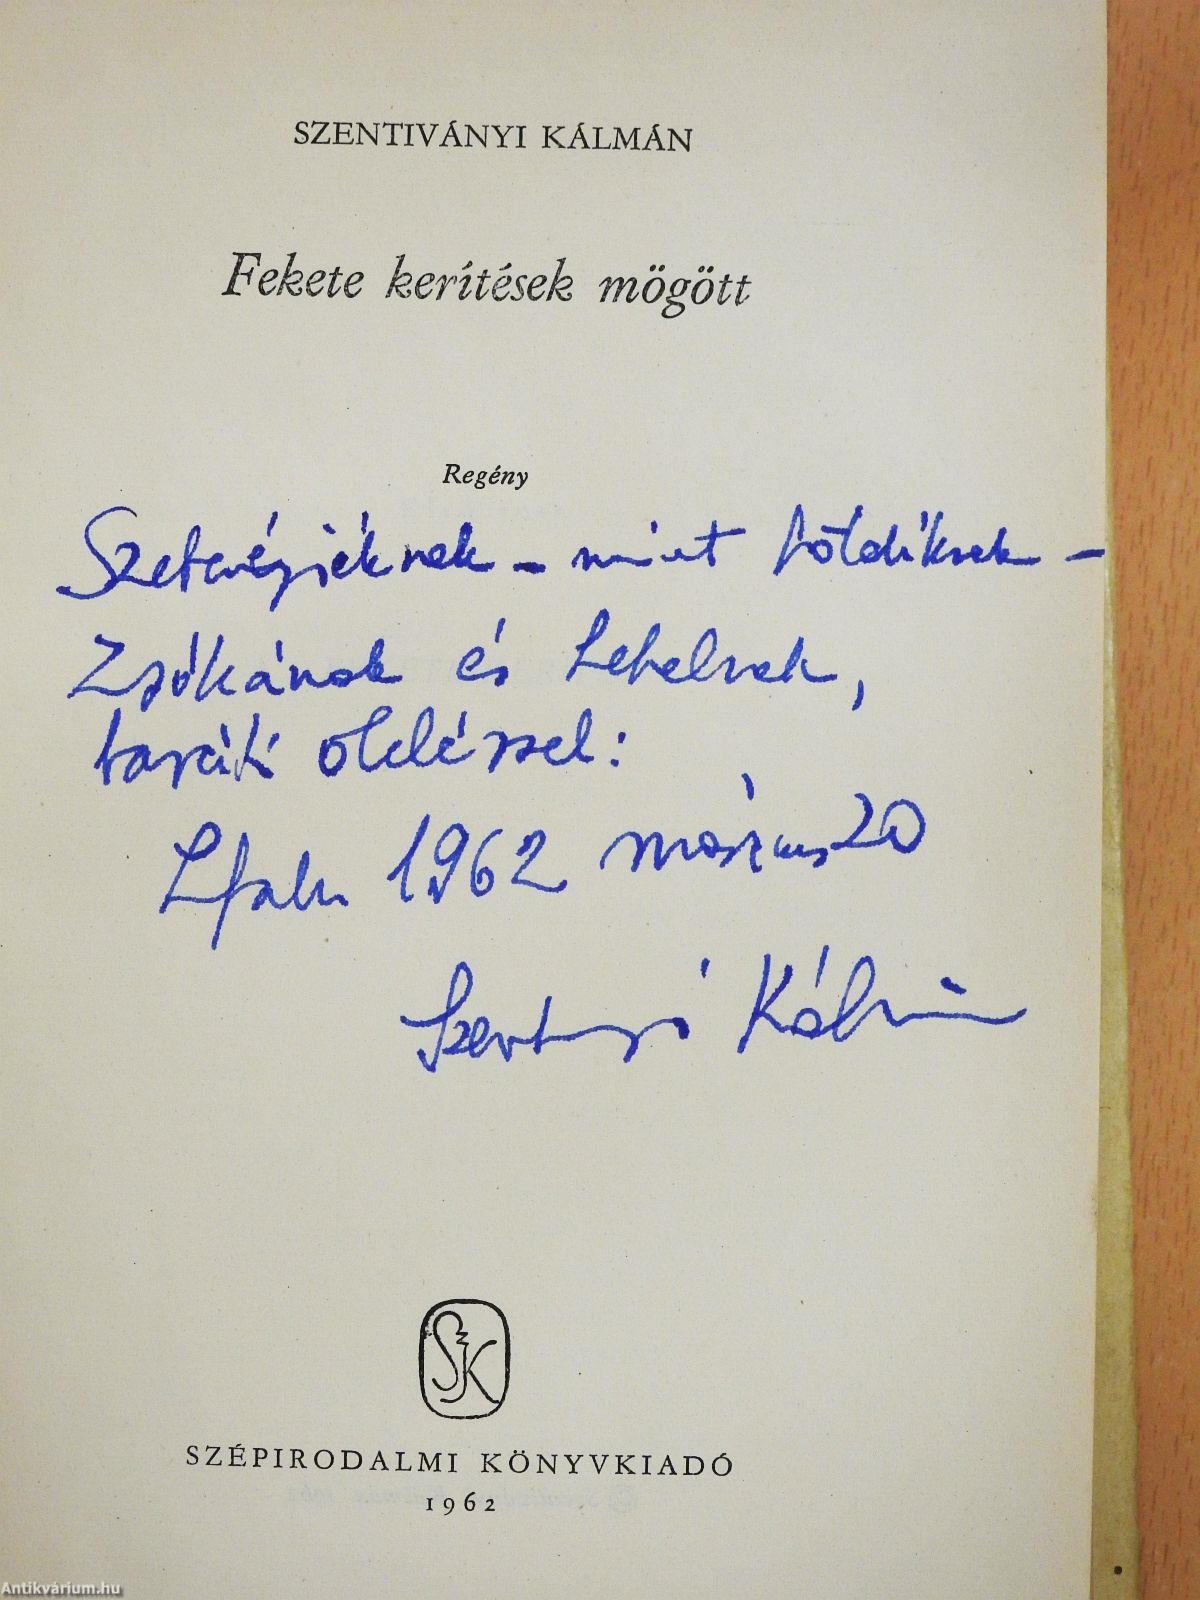 SZENTIVÁNYI KÁLMÁN
Fekete kerítések mögött
Regény
– mint földiknek –
Zsókának és Lehelnek,
baráti öleléssel:
Lfalu 1962 március 20
Szentiványi Kálmán
SZÉPIRODALMI KÖNYVKIADÓ
1962
Antikvárium.hu